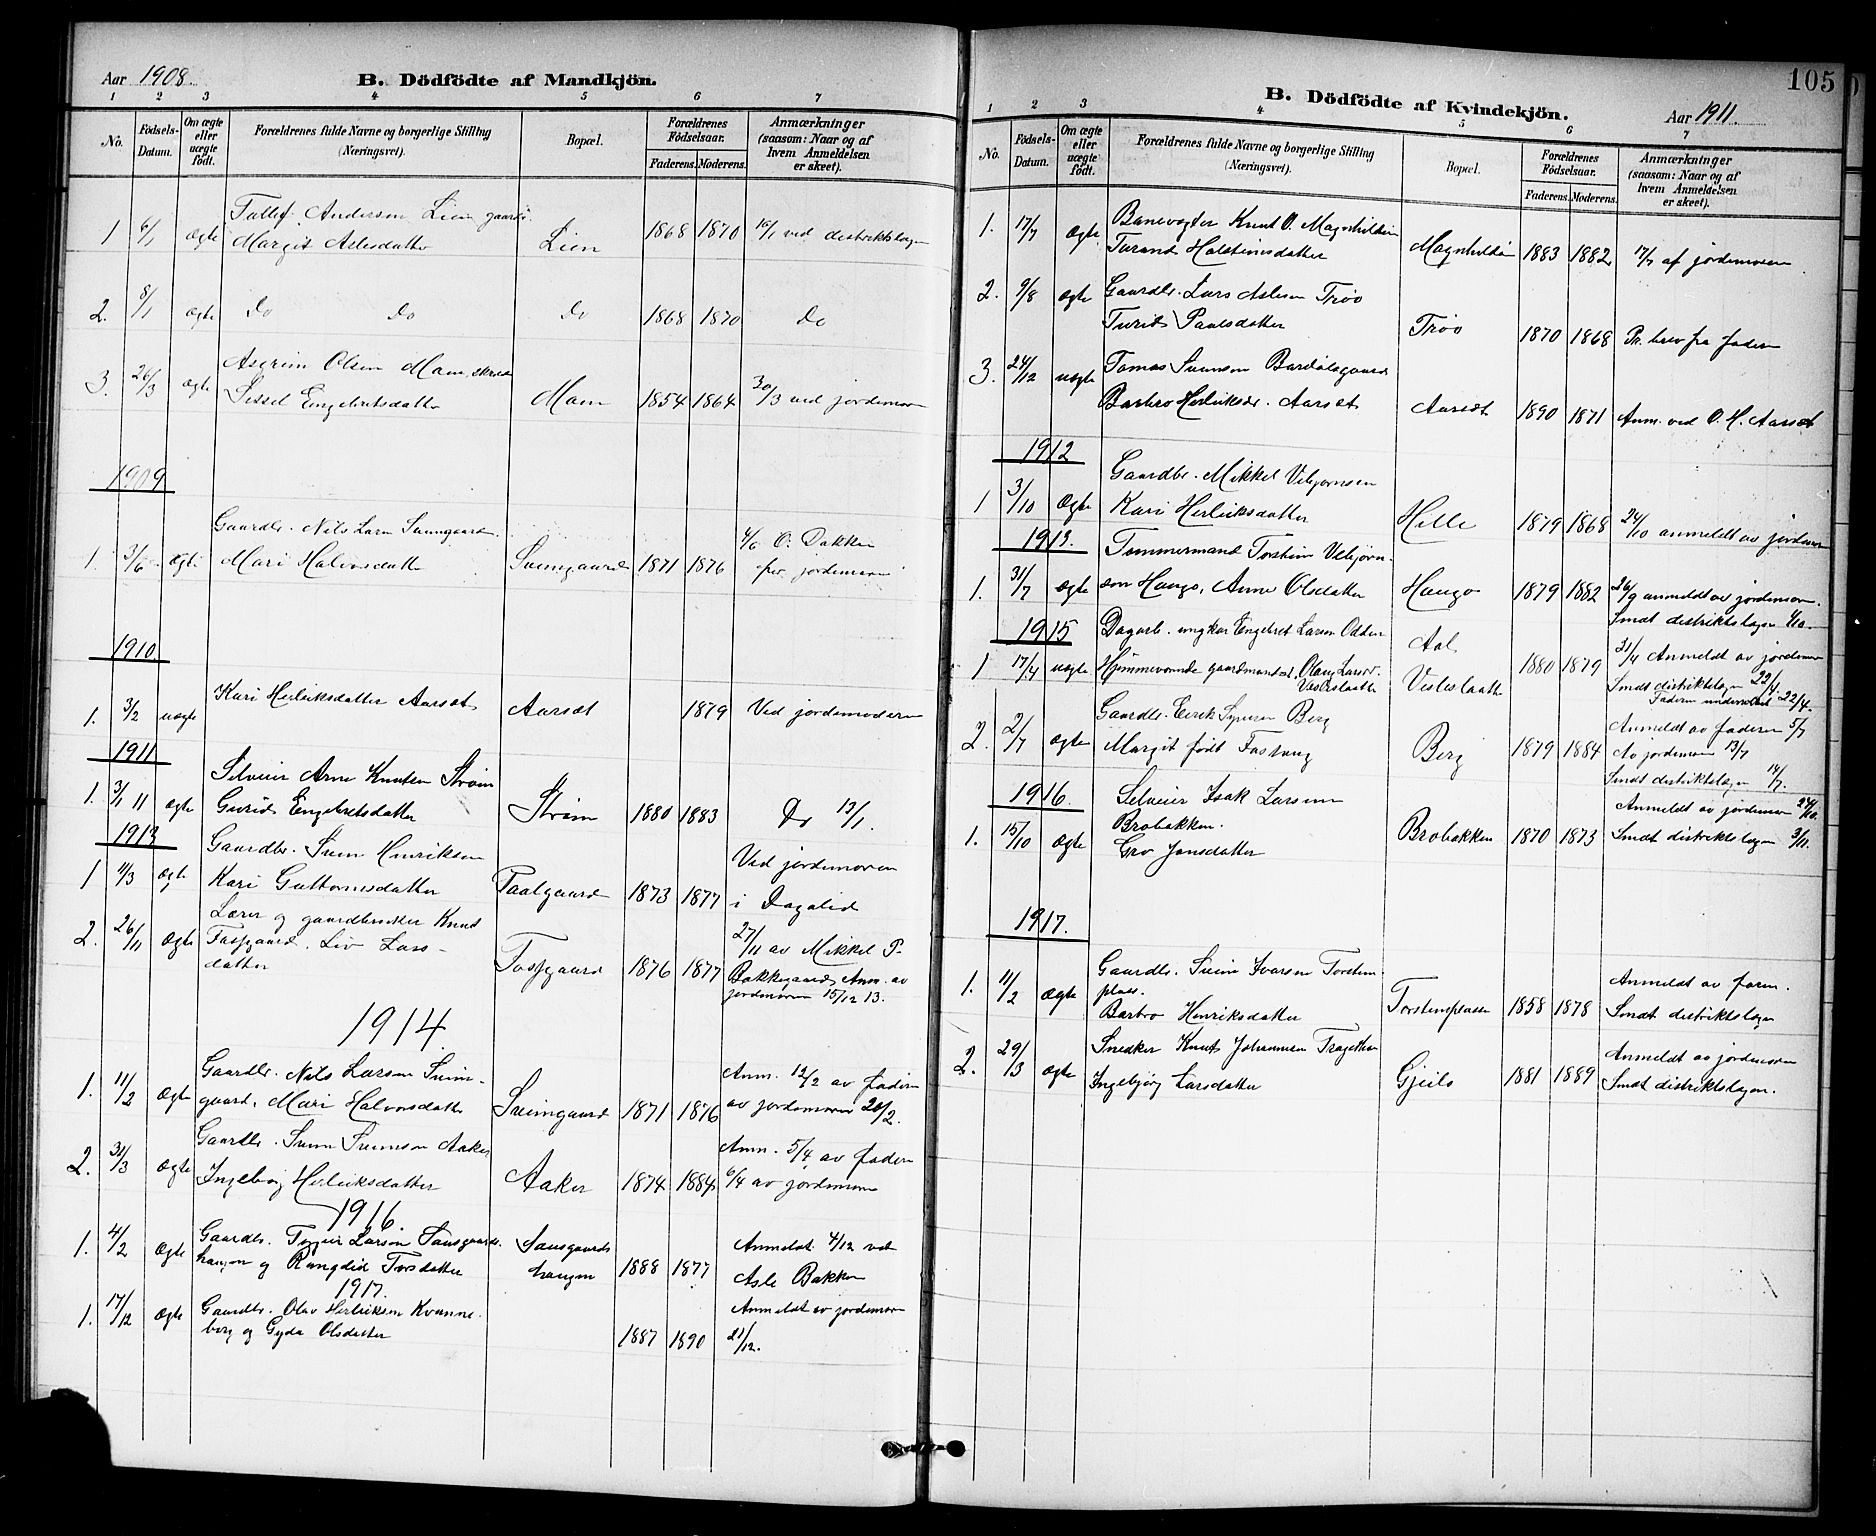 Aar 1908.
B. Dödfödte af Mandkjön.
1 2 3 4 5 6 7
No.
Födsels-Datum.
Om ægte eller uægte födt.
Forældrenes fulde Navne og borgerlige Stilling (Næringsvei).
Bopæl.
Forældrenes Födselsaar.
Faderens. Moderens.
Anmærkninger (saasom: Naar og af hvem Anmeldelsen er skeet).
Tollef Andersen Lien gaardb.
1 6/1 ægte Margit Aslesdatter Lien 1868 1870 16/1 ved distriktslægen
2. 8/1 ægte Do Do Do 1868 1870 Do
Asgrim Olsen Moen,
3. 26/3 ægte Sissel Engebretsdatter Moen 1854 1864 30/3 ved jordemoren
1909
Gaardbr. Nils Larsen Sveingaard
1 3/6 ægte Mari Halvorsdatter Sveingaard 1871 1876 4/6 O. Bakken
for jordemoren
1910.
Kari Herleiksdatter Aarset
1. 3/2 uægte Aarset 1879 Ved jordemoderen
1911
Selveier Arne Knutsen Strøm
1. 3/1 11 ægte Gurid Engebretsdatter Strøm 1880 1883 Do 13/1.
1913
Gaardbr. Svein Henriksen
1 11/3 ægte Kari Guttormsdatter Taalgaard 1873 1877 Ved jordemoren
i Dagalid
Lærer og gaardbruker Knut
2. 26/11 Ægte Tofsgaard. Liv Lars-
datter Tosfgaard 1876 1877 27/11 av Mikkel P.
Bakkegaard, Anm. av
jordmoren 15/12 13.
1914.
Gaardbr. Nils Larsen Svein-
1. 11/2 Ægte gaard, Mari Halvorsdatter Sveingaard 1871 1876 Anm. 12/2 av faderen
av jordemoren 20/2.
Gaardbr. Svein Sveinson Aaker
2. 31/3 Ægte Ingeborg Herleiksdatter Aaker 1874 1884 Anm. 5/4 av faderen
6/4 av jordemoren
1916.
1. 4/2 Ægte Gaardbr. Larson Sausgaards-
haugen og Rangdid Torsdatter Sausgaards
haugen 1888 1877 Anmeldt 4/12 ved
Asle Bakken
1917.
1. 17/12 Ægte Gaardbr. Olav Herleiksen Kvanne-
berg og Gyda Olsdatter 1887 1890 Anmeldt av jordemoren
21/12.
105
B. Dödfödte af Kvindekjön.
Aar 1911.
1 2 3 4 5 6 7
No.
Födsels-Datum.
Om ægte eller uægte födt.
Forældrenes fulde Navne og borgerlige Stilling (Næringsvei).
Bopæl.
Forældrenes Födselsaar.
Faderens. Moderens.
Anmærkninger (saasom: Naar og af hvem Anmeldelsen er skeet).
Banevogter Knut O. Magnhildin
1. 17/7 Ægte Turand Holsteinsdatter Magnhildin 1883 1882 17/7 af jordemoren
2. 9/8 ægte Gaardbr. Lars Aslesen Trøo
Turid Paulsdatter Trøo 1870 1868 Pr. brev fra faderen
3. 24/12 uægte Tomas Sveinsen Bardølsgaard
Barbro Herleiksdr. Aarset Aarset 1890 1871 Anm. ved O. H. Aarset
1912
Gaardbr. Mikkel Vebjørnsen
1 3/10 Ægte Kari Herleiksdatter Hille 1879 1868 24/10 anmeldt av jordemoren
1913.
Tømmermand Torstein Vebjørn-
1. 31/7 Ægte son Haugo, Anne Olsdatter Haugo 1879 1882 26/9 anmeldt av jordemoren.
Smdt distriktslægen 1/10.
1915
Dagarb. ungkar Engebret Larsen Odden Aal
1 17/4 uægte Hjemmeværende gaardmandsd. Olaug Larsd.
Vesleslaatte Vesleslaatte 1880 1879 21/4 Anmeldt av jordemor
Smdt distriktslægen 22/4.
Faderen underrettet 22/4.
Gaardbr. Eirik Syversen Berg
2. 2/7 ægte Margit født Tostung Berg 1879 1884 Anmeldt av faderen 5/7
Av jordemoren 13/7
Smdt distriktslægen 14/7.
1916.
Selveier Isak Larsen
Brobakken.
1. 15/10 Ægte Gro Jonsdatter Brobakken 1870 1873 Anmeldt av jordemoren 24/10.
Smdt distriktslægen 3/11.
1917.
Gaardbr. Svein Ivarsen Torstein-
1. 11/2 Ægte plass.
Barbro Henriksdatter Torsteinplassen 1858 1878 Anmeldt av faren.
Smdt distriktslægen
2. 29/3 Ægte Snedker Knut Johannesen Tragethon
Ingebjørg Larsdatter Gjeilo 1881 1889 Anmeldt av jordemoren
Smdt distriktslægen.